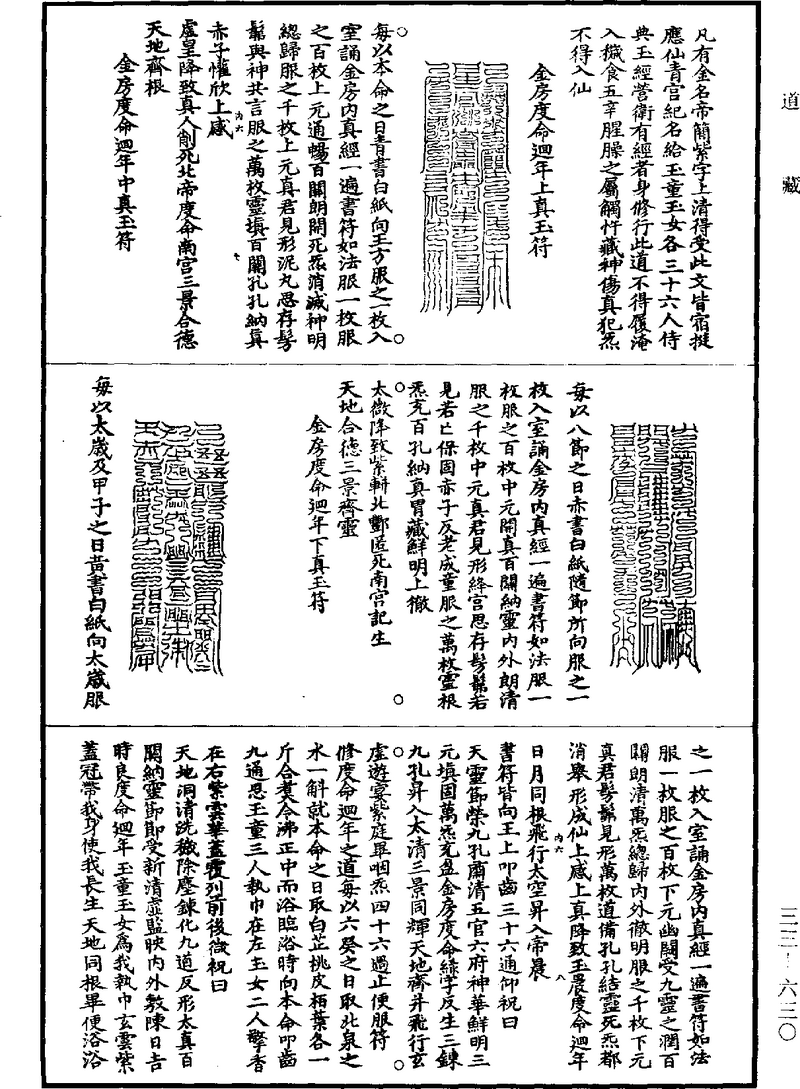 道藏
三三—六三〇
凡有金名帝簡紫字上清得受此文皆宿挺
應仙青宮紀名給玉童玉女各三十六人侍
典玉經營衛有經者身修行此道不得履淹
入穢食五辛腥臊之屬觸忤藏神傷真犯炁
不得入仙
金房度命迴年上真玉符
每以本命之日青書白紙向王方服之一枚入
室誦金房內真經一遍書符如法服一枚服
之百枚上元通暢百關朗開死炁消滅神明
總歸服之千枚上元真君見形泥丸思存髣
髴與神共言服之萬枚靈填百關孔孔納真
赤子懽欣上感
內六
七
虛皇降致真人削死北帝度命南宮三景合德
天地齊根
金房度命迴年中真玉符
每以八節之日赤書白紙隨節所向服之一
枚入室誦金房內真經一遍書符如法服一
枚服之百枚中元開真百關納靈內外朗清
服之千枚中元真君見形絳宮思存髣髴若
見若亡保固赤子反老成童服之萬枚靈根
炁充百孔納真胃藏鮮明上徹
太微降致紫軿北酆匿死南宮記生
天地合德三景齊靈
金房度命迴年下真玉符
每以太歲及甲子之日黃書白紙向太歲服
之一枚入室誦金房內真經一遍書符如法
服一枚服之百枚下元幽關受九靈之潤百
關朗清萬炁總歸內外徹明服之千枚下元
真君髣髴見形萬枚道備孔孔結靈死炁都
消舉形成仙上感上真降致玉晨度命迴年
內六
八
日月同根飛行太空昇入帝晨
書符皆向王上叩齒三十六通仰祝曰
天靈節榮九孔肅清五官六府神華鮮明三
元填固萬炁充盈金房度命綠字反生三鍊
九孔昇入太清三景同輝天地齊并飛行玄
虛遊宴紫庭畢咽炁四十六過止便服符
修度命迴年之道每以六癸之日取北泉之
水一斛就本命之日取白芷桃皮栢葉各一
斤合煮令沸正中而浴臨浴時向本命叩齒
九通思玉童三人執巾在左玉女二人擎香
在右紫雲華蓋覆列前後微祝曰
天地洞清洗穢除塵鍊化九道反形太真百
關納靈節節受新清虛監映內外敷陳日吉
時良度命迴年玉童玉女為我執巾玄雲紫
蓋冠帶我身使我長生天地同根畢便浴浴